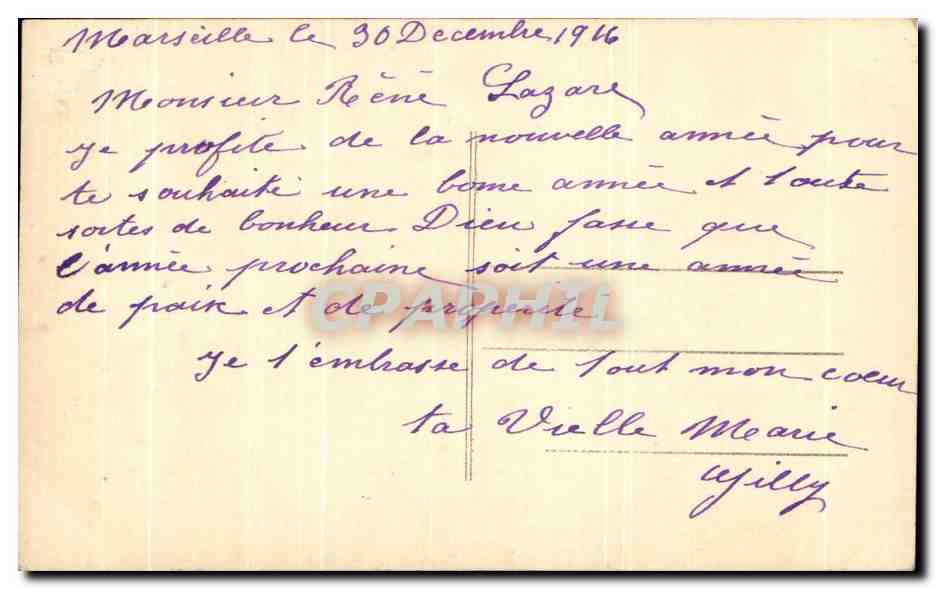 Marseille le 30 Decembre 1916
Monsieur Réné Lazare
je profite de la nouvelle année pour
te souhaité une bonne année et toute
sortes de bonheur Dieu fasse que
l'année prochaine soit une année
de paix et de
CPAPHIL
je t'embrasse de tout mon coeur
ta Vielle Marie